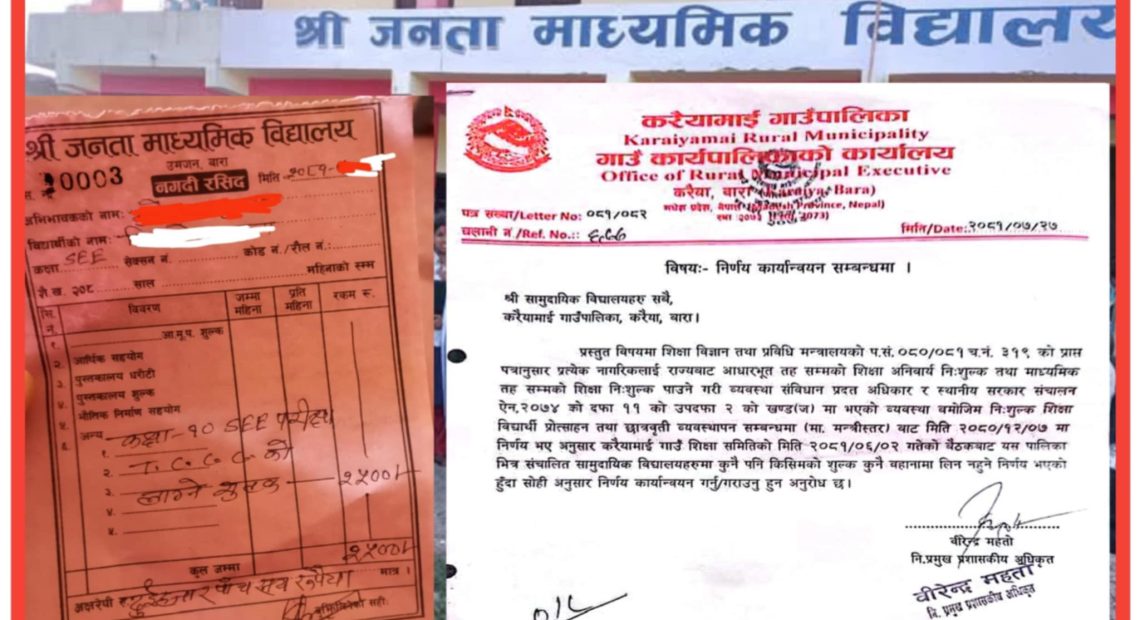 श्री जनता माध्यमिक विद्यालय
श्री जनता माध्यमिक विद्यालय
उमजन, बारा
0003
नगदी रसिद
मिति २०८१-
अभिभावकको नामः
विद्यार्थीको नामः
कक्षा SEE सेक्सन नं. कोड नं./रोल नं.:
शै.ख. २०८ साल महिनाको रुम्म
सि. नं. विवरण जम्मा महिना प्रति महिना रकम रू.
१. आ.मू.प. शुल्क
२. आर्थिक सहयोग
३. पुस्तकालय धरौटी
४. पुस्तकालय शुल्क
५. भौतिक निर्माण सहयोग
६. अन्य
१. कक्षा-१० SEE परीक्षा
२. को
३. लाग्ने शुल्क २५००/-
४.
५.
कुल जम्मा २५००/-
अक्षरेपी रू दुई हजार पाँच सय रूपैया मात्र ।
बुझिलिनेको सही:
करैयामाई गाउँपालिका
Karaiyamai Rural Municipality
गाउँ कार्यपालिकाको कार्यालय
Office of Rural Municipal Executive
करैया, बारा (Karaiya, Bara)
मधेश प्रदेश, नेपाल (Madhesh Province, Nepal)
२०७३ 2073)
पत्र सख्या/Letter No: ०८१/०८२
चलानी नं./Ref. No.::
मिति/Date: २०८१/०७/२७
विषयः- निर्णय कार्यान्वयन सम्बन्धमा ।
श्री सामुदायिक विद्यालयहरु सबै,
करैयामाई गाउँपालिका, करैया, बारा।
प्रस्तुत विषयमा शिक्षा विज्ञान तथा प्रविधि मन्त्रालयको प.सं. ०८०/०८१ च.नं. ३१९ को प्राप्त
पत्रानुसार प्रत्येक नागरिकलाई राज्यबाट आधारभूत तह सम्मको शिक्षा अनिवार्य निःशुल्क तथा माध्यमिक
तह सम्मको शिक्षा निःशुल्क पाउने गरी व्यवस्था संविधान प्रदत अधिकार र स्थानीय सरकार संचालन
ऐन,२०७४ को दफा ११ को उपदफा २ को खण्ड(ज) मा भएको व्यवस्था बमोजिम निःशुल्क शिक्षा
विद्यार्थी प्रोत्साहन तथा छात्रवृती व्यवस्थापन सम्बन्धमा (मा. मन्त्रीस्तर) बाट मिति २०८०/१२/०७ मा
निर्णय भए अनुसार करैयामाई गाउँ शिक्षा समितिको मिति २०८१/०६/०२ गतेको बैठकबाट यस पालिका
भित्र संचालित सामुदायिक विद्यालयहरुमा कुनै पनि किसिमको शुल्क कुनै वहानामा लिन नहुने निर्णय भएको
हुँदा सोही अनुसार निर्णय कार्यान्वयन गर्नु/गराउनु हुन अनुरोध छ।
वीरेन्द्र महतो
नि.प्रमुख प्रशासकीय अधिकृत
वीरेन्द्र महतो
नि. प्रमुख प्रशासकीय अधिकृत